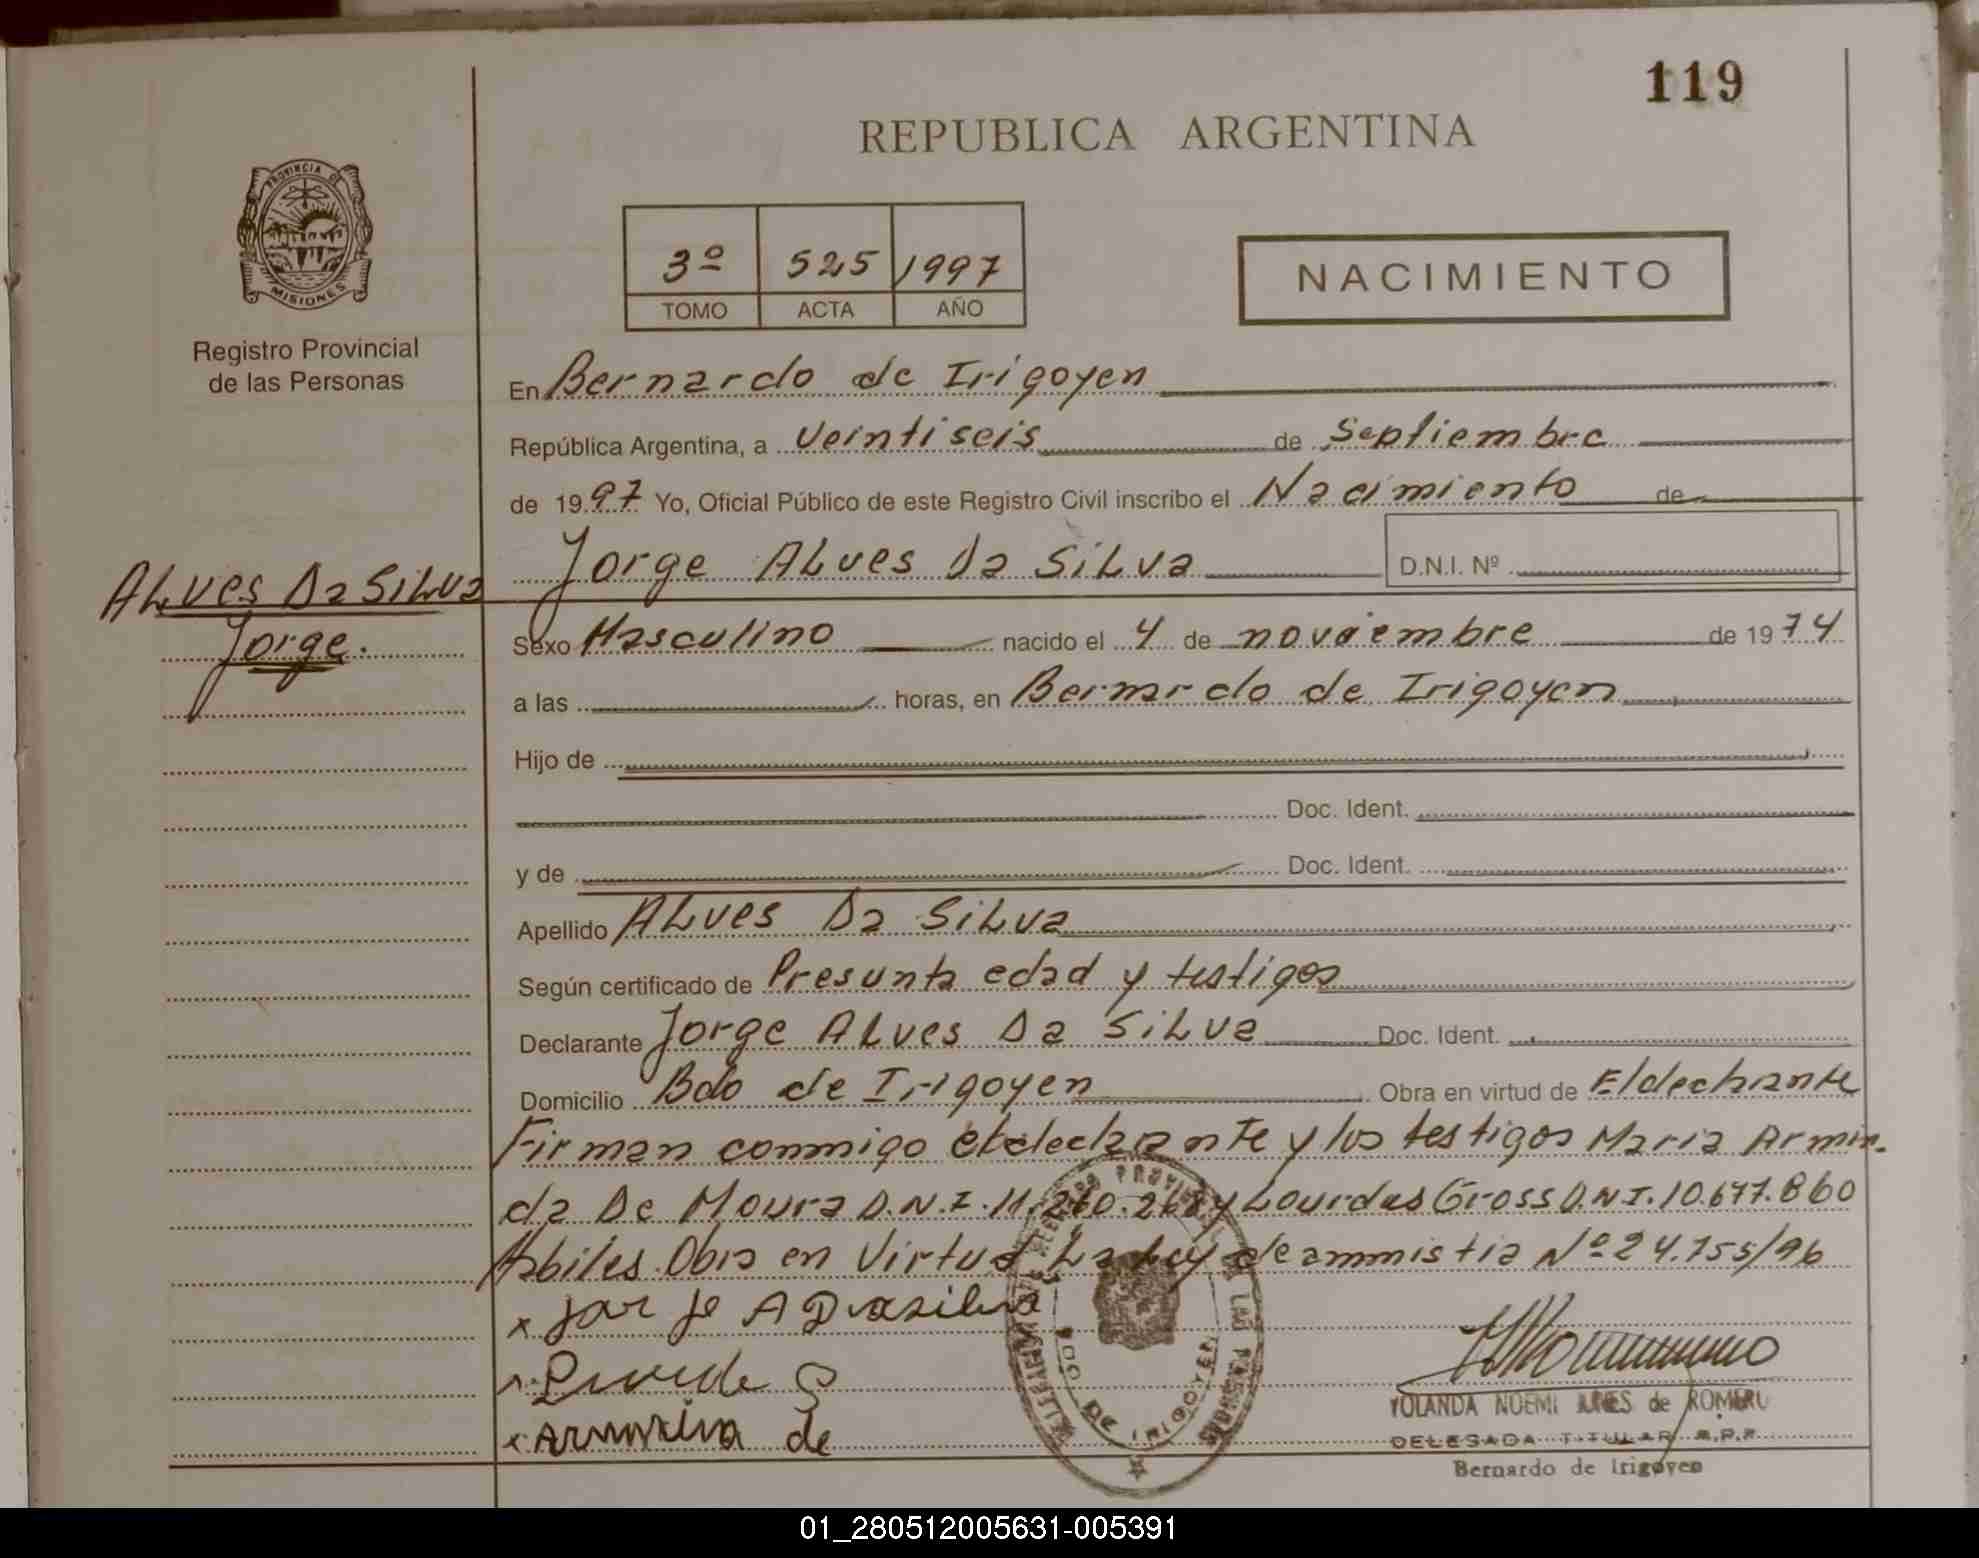 119
REPUBLICA ARGENTINA
PROVINCIA DE
MISIONES
Registro Provincial
de las Personas
3º 525 1997
TOMO ACTA AÑO
NACIMIENTO
En Bernardo de Irigoyen
República Argentina, a Veintiseis de Septiembre
de 1997 Yo, Oficial Público de este Registro Civil inscribo el Nacimiento de
Jorge ALves Da SiLva D.N.I. Nº
ALves Da SiLva
Jorge.
Sexo Masculino nacido el 4 de noviembre de 1974
a las horas, en Bernardo de Irigoyen
Hijo de
Doc. Ident.
y de Doc. Ident.
Apellido ALves Da SiLva
Según certificado de Presunta edad y testigos
Declarante Jorge ALves Da SiLva Doc. Ident.
Domicilio Bdo de Irigoyen Obra en virtud de El dechante
Firman conmigo el dechante y los testigos Maria Armin-
da De Moura D.N.I. 11.260.268 y Lourdes Gross D.N.I. 10.677.860
Habiles. Obra en Virtud La Ley de ammistia Nº 24.755/96
x Jorje A Dasilva
x Armrinda de
BDO DE IRIGOYEN
YOLANDA NOEMI de ROMERO
DELEGADA TITULAR R.P.P.
Bernardo de Irigoyen
01_280512005631-005391